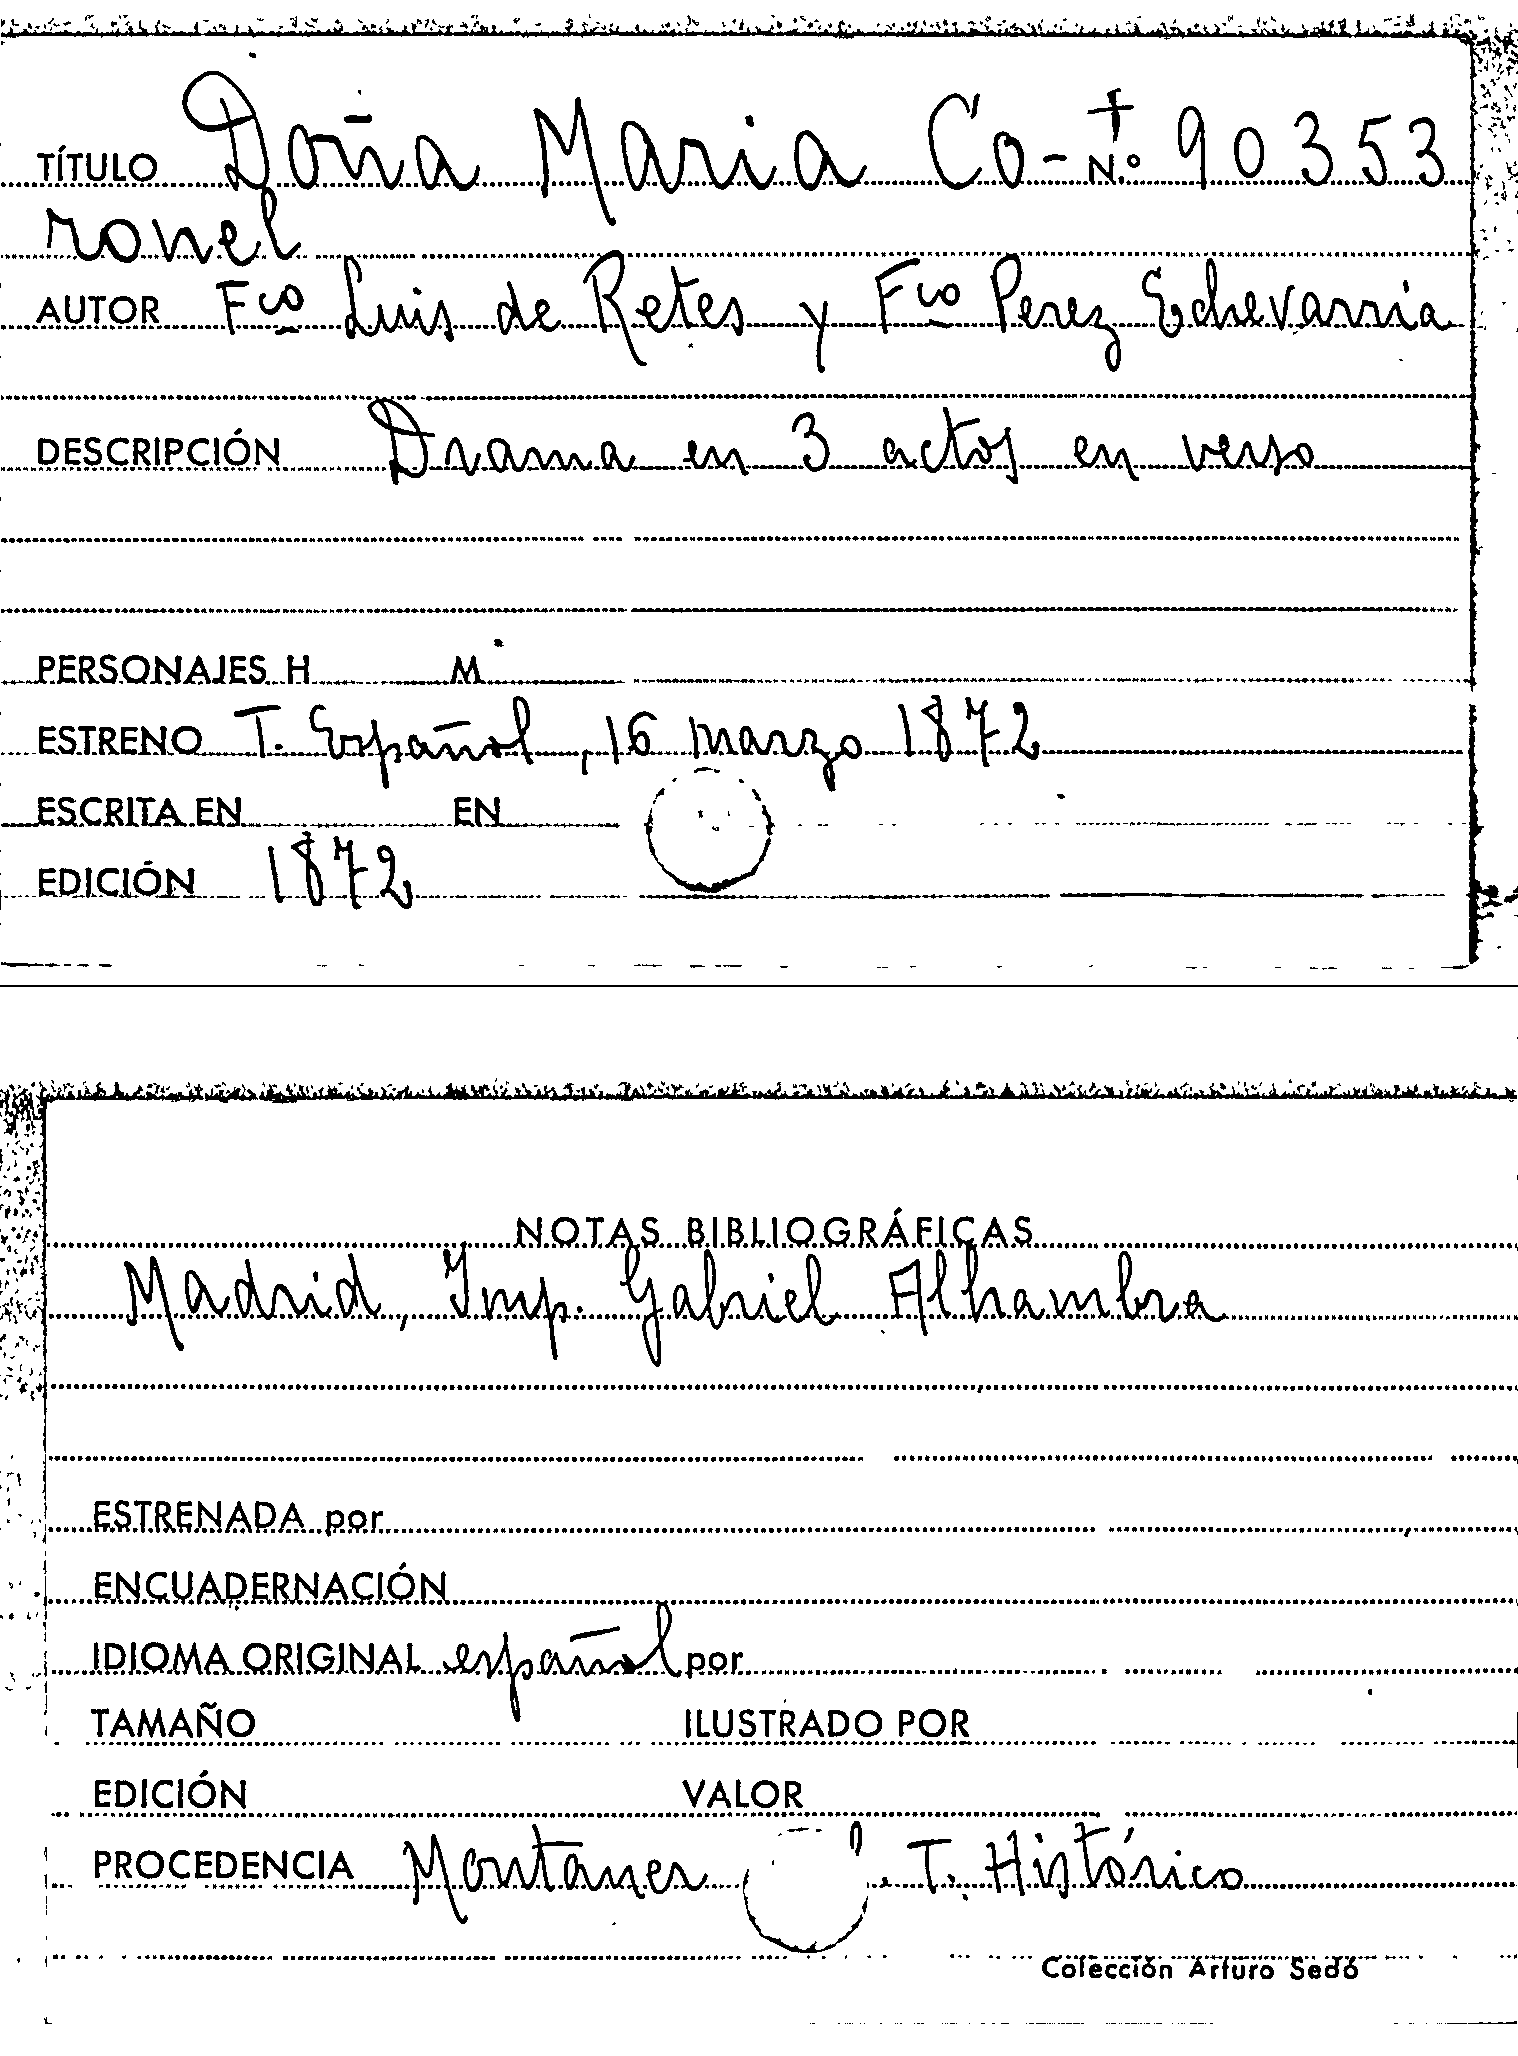 TÍTULO Doña Maria Co- N.º 90353
ronel
AUTOR Fco Luis de Retes y Fco Perez Echevarria
DESCRIPCIÓN Drama en 3 actos en verso
PERSONAJES H M
ESTRENO T. Español, 16 marzo 1872
ESCRITA EN EN
EDICIÓN 1872
NOTAS BIBLIOGRÁFICAS
Madrid, Imp. Gabriel Alhambra
ESTRENADA por
ENCUADERNACIÓN
IDIOMA ORIGINAL español por
TAMAÑO ILUSTRADO POR
EDICIÓN VALOR
PROCEDENCIA Montaner T. Histórico
Colección Arturo Sedó